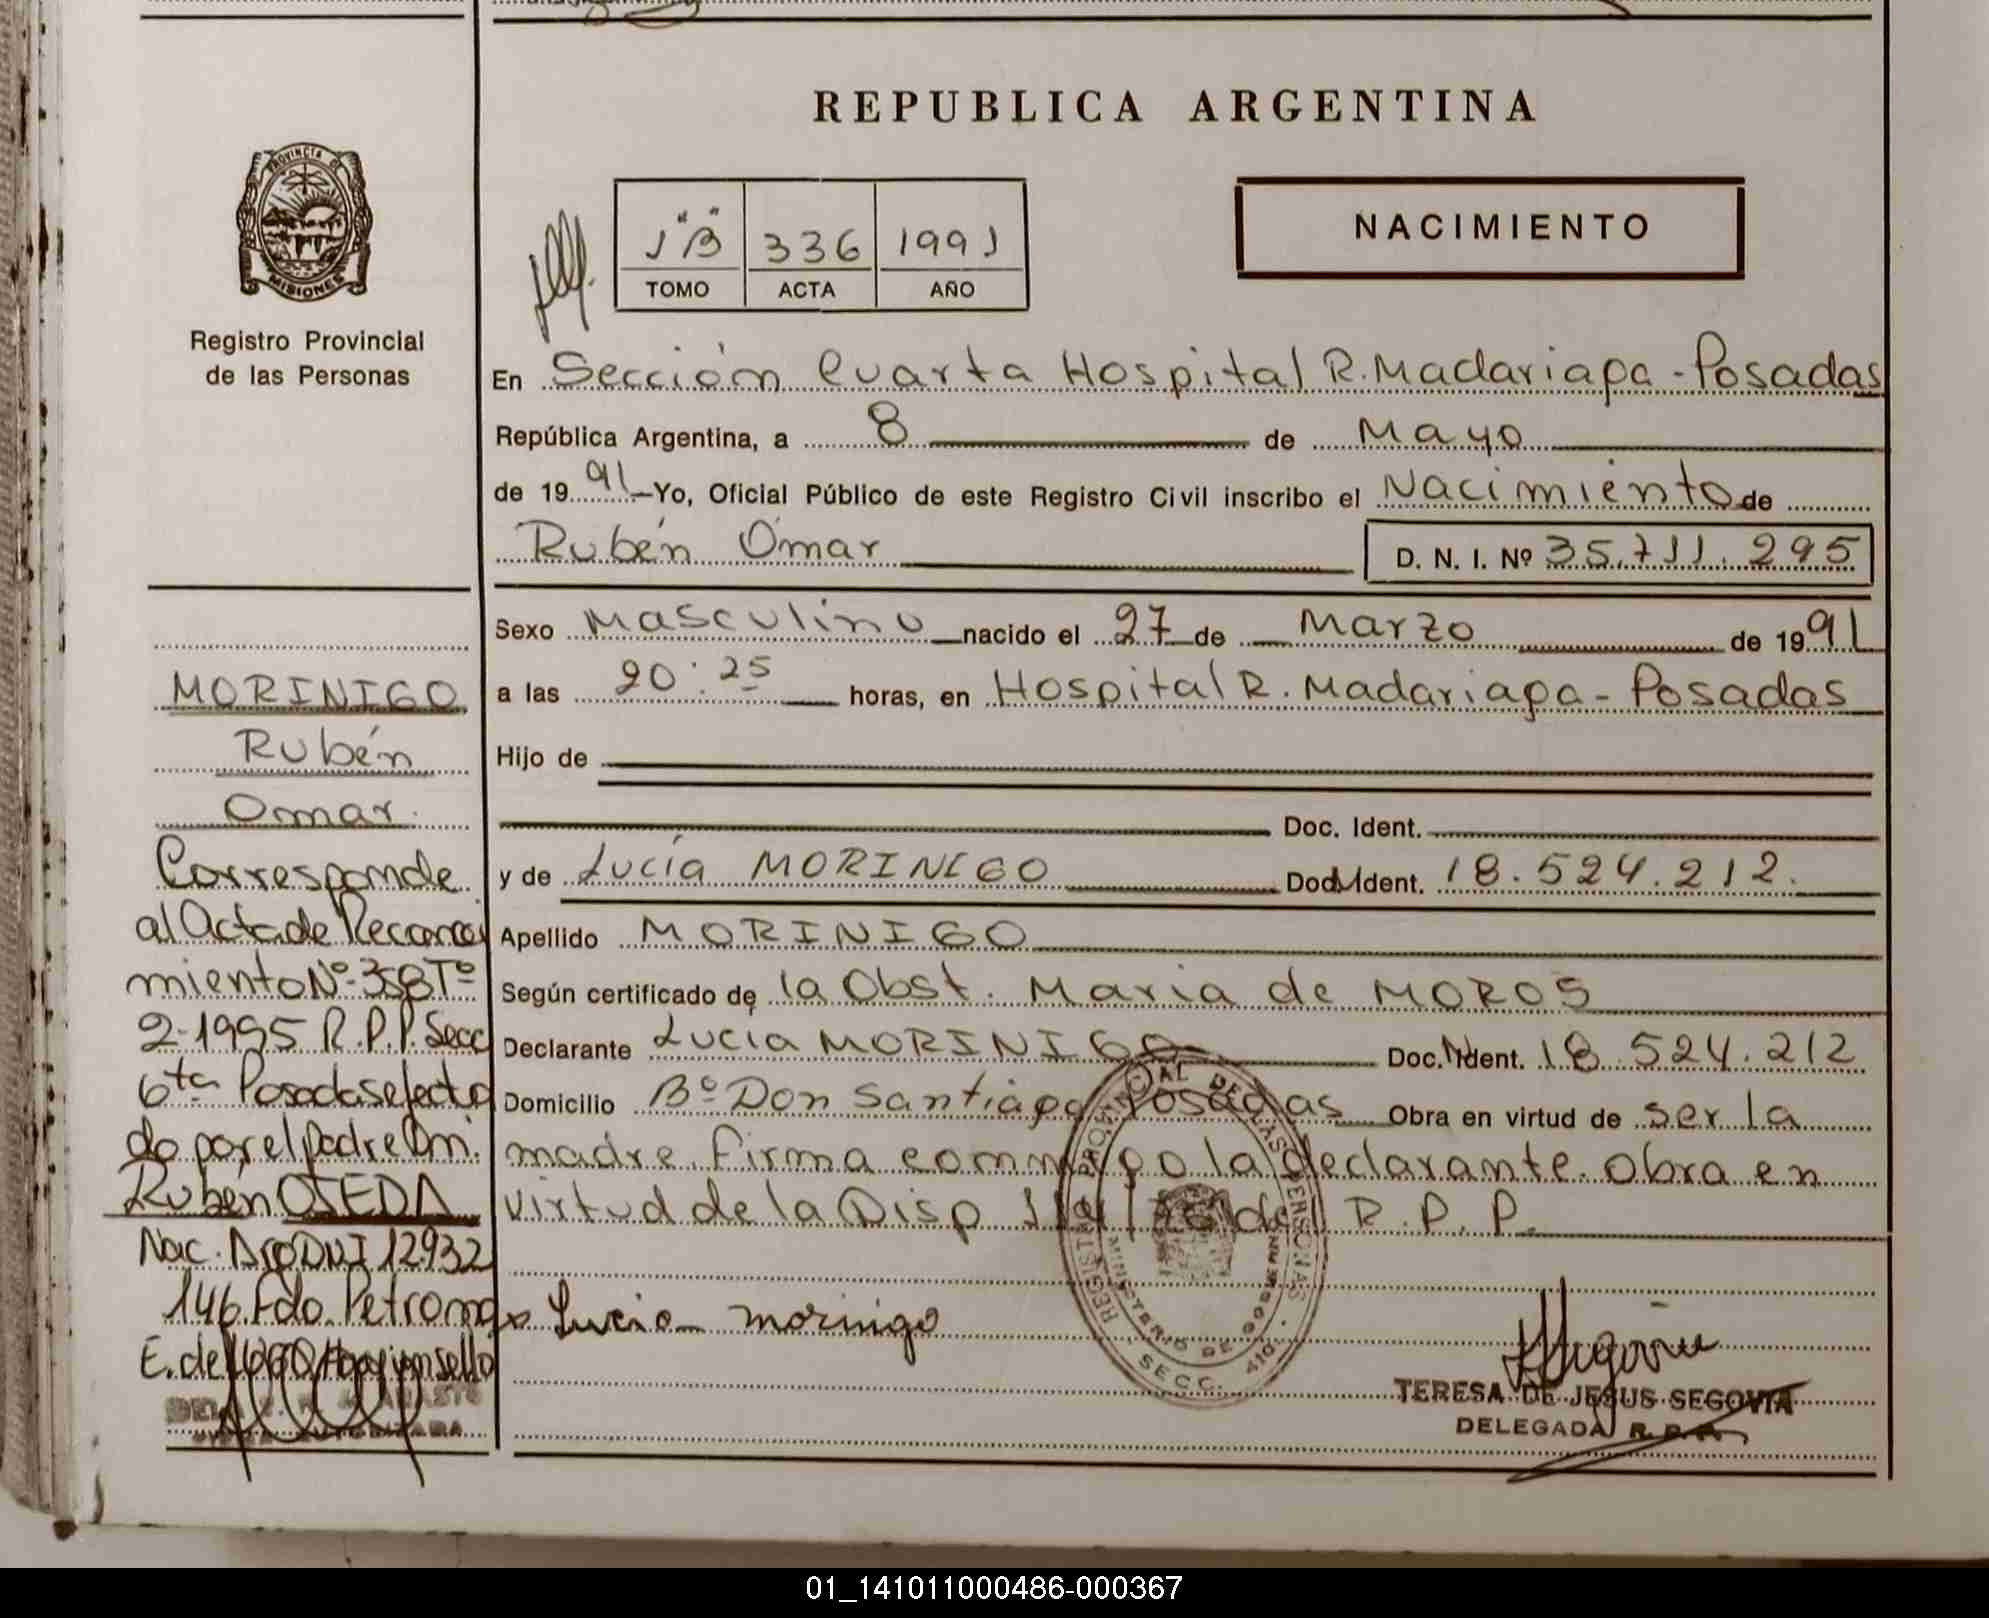 REPUBLICA ARGENTINA
PROVINCIA DE
MISIONES
Registro Provincial
de las Personas
1"B" 336 1991
TOMO ACTA AÑO
NACIMIENTO
En Sección Cuarta Hospital R. Madariaga - Posadas
República Argentina, a 8 de Mayo
de 1991 Yo, Oficial Público de este Registro Civil inscribo el Nacimiento de
Rubén Omar D. N. I. Nº 35.711.295
Sexo Masculino nacido el 27 de Marzo de 1991
a las 20:25 horas, en Hospital R. Madariaga - Posadas
Hijo de
Doc. Ident.
y de Lucía MORINIGO Doc. Ident. 18.524.212.
Apellido MORINIGO
Según certificado de la Obst. Maria de MOROS
Declarante Lucia MORINIGO Doc. Ident. 18.524.212
Domicilio Bº Don Santiago Posadas Obra en virtud de ser la
madre. Firma conmigo la declarante. Obra en
virtud de la Disp del R.P.P.
Lucia morinigo
REGISTRO PROVINCIAL DE LAS PERSONAS
MINISTERIO DE GOBIERNO
SECC. 4ta.
TERESA DE JESUS SEGOVIA
DELEGADA R.P.P.
MORINIGO
Rubén
Omar.
Corresponde
al Acta de Reconoci
miento Nº 358 Tº
2-1995 R.P.P. Secc
6ta Posadas efectua
do por el padre
Rubén OJEDA
Nac. Arg DNI 12.932
146. Fdo. Petrona
E. de Hay un sello
01_141011000486-000367